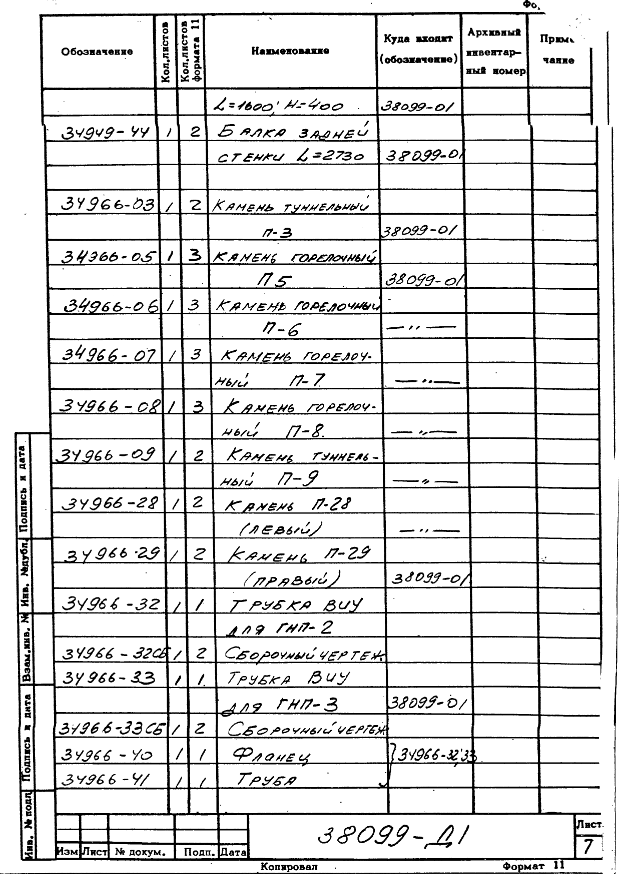 Фо.
Обозначение Кол.листов Кол.листов формата 11 Наименование Куда входит (обозначение) Архивный инвентар-ный номер Приме чание
L=1600; H=400 38099-01
34949-44 1 2 Балка задней
стенки L=2730 38099-01
34966-03 1 2 Камень туннельный
П-3 38099-01
34966-05 1 3 Камень горелочный
П5 38099-01
34966-06 1 3 Камень горелочный
П-6 —〃—
34966-07 1 3 Камень горелоч-
ный П-7 —〃—
34966-08 1 3 Камень горелоч-
ный П-8. —〃—
34966-09 1 2 Камень туннель-
ный П-9 —〃—
34966-28 1 2 Камень П-28
(левый) —〃—
34966-29 1 2 Камень П-29
(правый) 38099-01
34966-32 1 1 Трубка ВИУ
для ГНП-2
34966-32СБ 1 2 Сборочный чертеж
34966-33 1 1. Трубка ВИУ
для ГНП-3 38099-01
34966-33СБ 1 2 Сборочный чертеж
34966-40 1 1 Фланец } 34966-32,33
34966-41 1 1 Труба
Инв. № подл Подпись и дата Взам.инв. № Инв. №дубл. Подпись и дата
38099-Д1
Лист
7
Изм Лист № докум. Подп. Дата
Копировал Формат 11